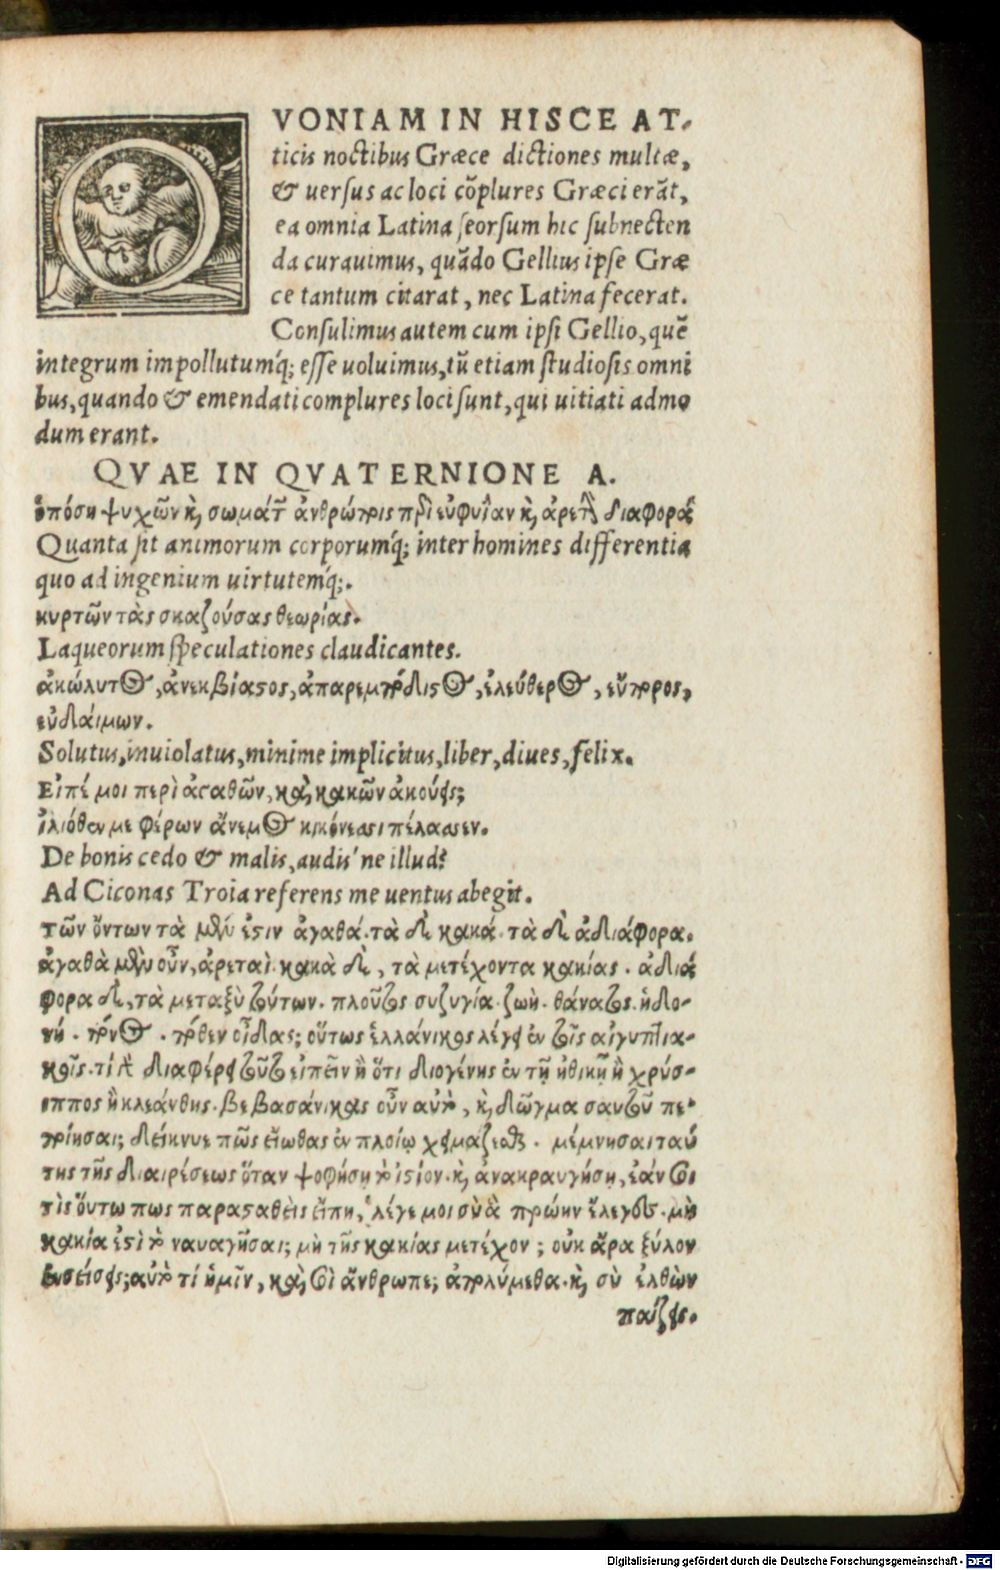 QVONIAM IN HISCE AT-
ticis noctibus Græce dictiones multæ,
& uersus ac loci cōplures Græci erāt,
ea omnia Latina seorsum hic subnecten
da curauimus, quādo Gellius ipse Græ
ce tantum citarat, nec Latina fecerat.
Consulimus autem cum ipsi Gellio, quē
integrum impollutumq́; esse uoluimus, tū etiam studiosis omni
bus, quando & emendati complures loci sunt, qui uitiati admo
dum erant.
QVAE IN QVATERNIONE A.
ὁπόση ψυχῶν κ̀ σωμάτ͂ ἀνθρώποις περὶ εὐφυΐαν κ̀ ἀρετὴν διαφορά
Quanta sit animorum corporumq́; inter homines differentia
quo ad ingenium uirtutemq́;.
κυρτῶν τὰς σκαζούσας θεωρίας.
Laqueorum speculationes claudicantes.
ἀκώλυτος, ἀνεκβίαστος, ἀπαρεμπόδιστος, ἐλεύθερος, εὔπορος,
εὐδαίμων.
Solutus, inuiolatus, minime implicitus, liber, diues, felix.
Εἰπέ μοι περὶ ἀγαθῶν, καὶ κακῶν ἀκούεις;
ἰλιόθεν με φέρων ἄνεμος κικόνεσσι πέλασσεν.
De bonis cedo & malis, audis'ne illud?
Ad Ciconas Troia referens me uentus abegit.
τῶν ὄντων τὰ μὲν ἐστιν ἀγαθά· τὰ δὲ κακά· τὰ δὲ ἀδιάφορα.
ἀγαθὰ μὲν οὖν, ἀρεταὶ· κακὰ δὲ, τὰ μετέχοντα κακίας· ἀδιά
φορα δὲ, τὰ μεταξὺ τούτων· πλοῦτος συζυγία· ζωὴ· θάνατος· ἡδο-
νή· πόνος· πόθεν οἶδας; οὕτως ἑλλάνικος λέγει ἐν τοῖς αἰγυπτια-
κοῖς· τί δὲ διαφέρει τοῦτο εἰπεῖν ἢ ὅτι διογένης ἐν τῇ ἠθικῇ ἢ χρύσ-
ιππος ἢ κλεάνθης· βεβασάνικας οὖν αὐτὸ, κ̀ δῶγμα σαυτοῦ πε-
ποίησαι; δείκνυε πῶς εἴωθας ἐν πλοίῳ χειμάζεσθαι· μέμνησαι ταύ
της τῆς διαιρέσεως ὅταν ψοφήσῃ τὸ ἱστίον· κ̀ ἀνακραυγήσῃ, ἐάν σοι
τὶς ὅυτω πως παρασταθεὶς εἴπῃ, λέγε μοι σὺ ἃ πρώην ἔλεγες· μὴ
κακία ἐστὶ τὸ ναυαγῆσαι; μὴ τῆς κακίας μετέχον; οὐκ ἄρα ξύλον
ἐνσείσεις; αὐτὸ τί ἡμῖν, καὶ σοὶ ἄνθρωπε; ἀπολύμεθα· κ̀ σὺ ἐλθὼν
παίζεις.
Digitalisierung gefördert durch die Deutsche Forschungsgemeinschaft - DFG